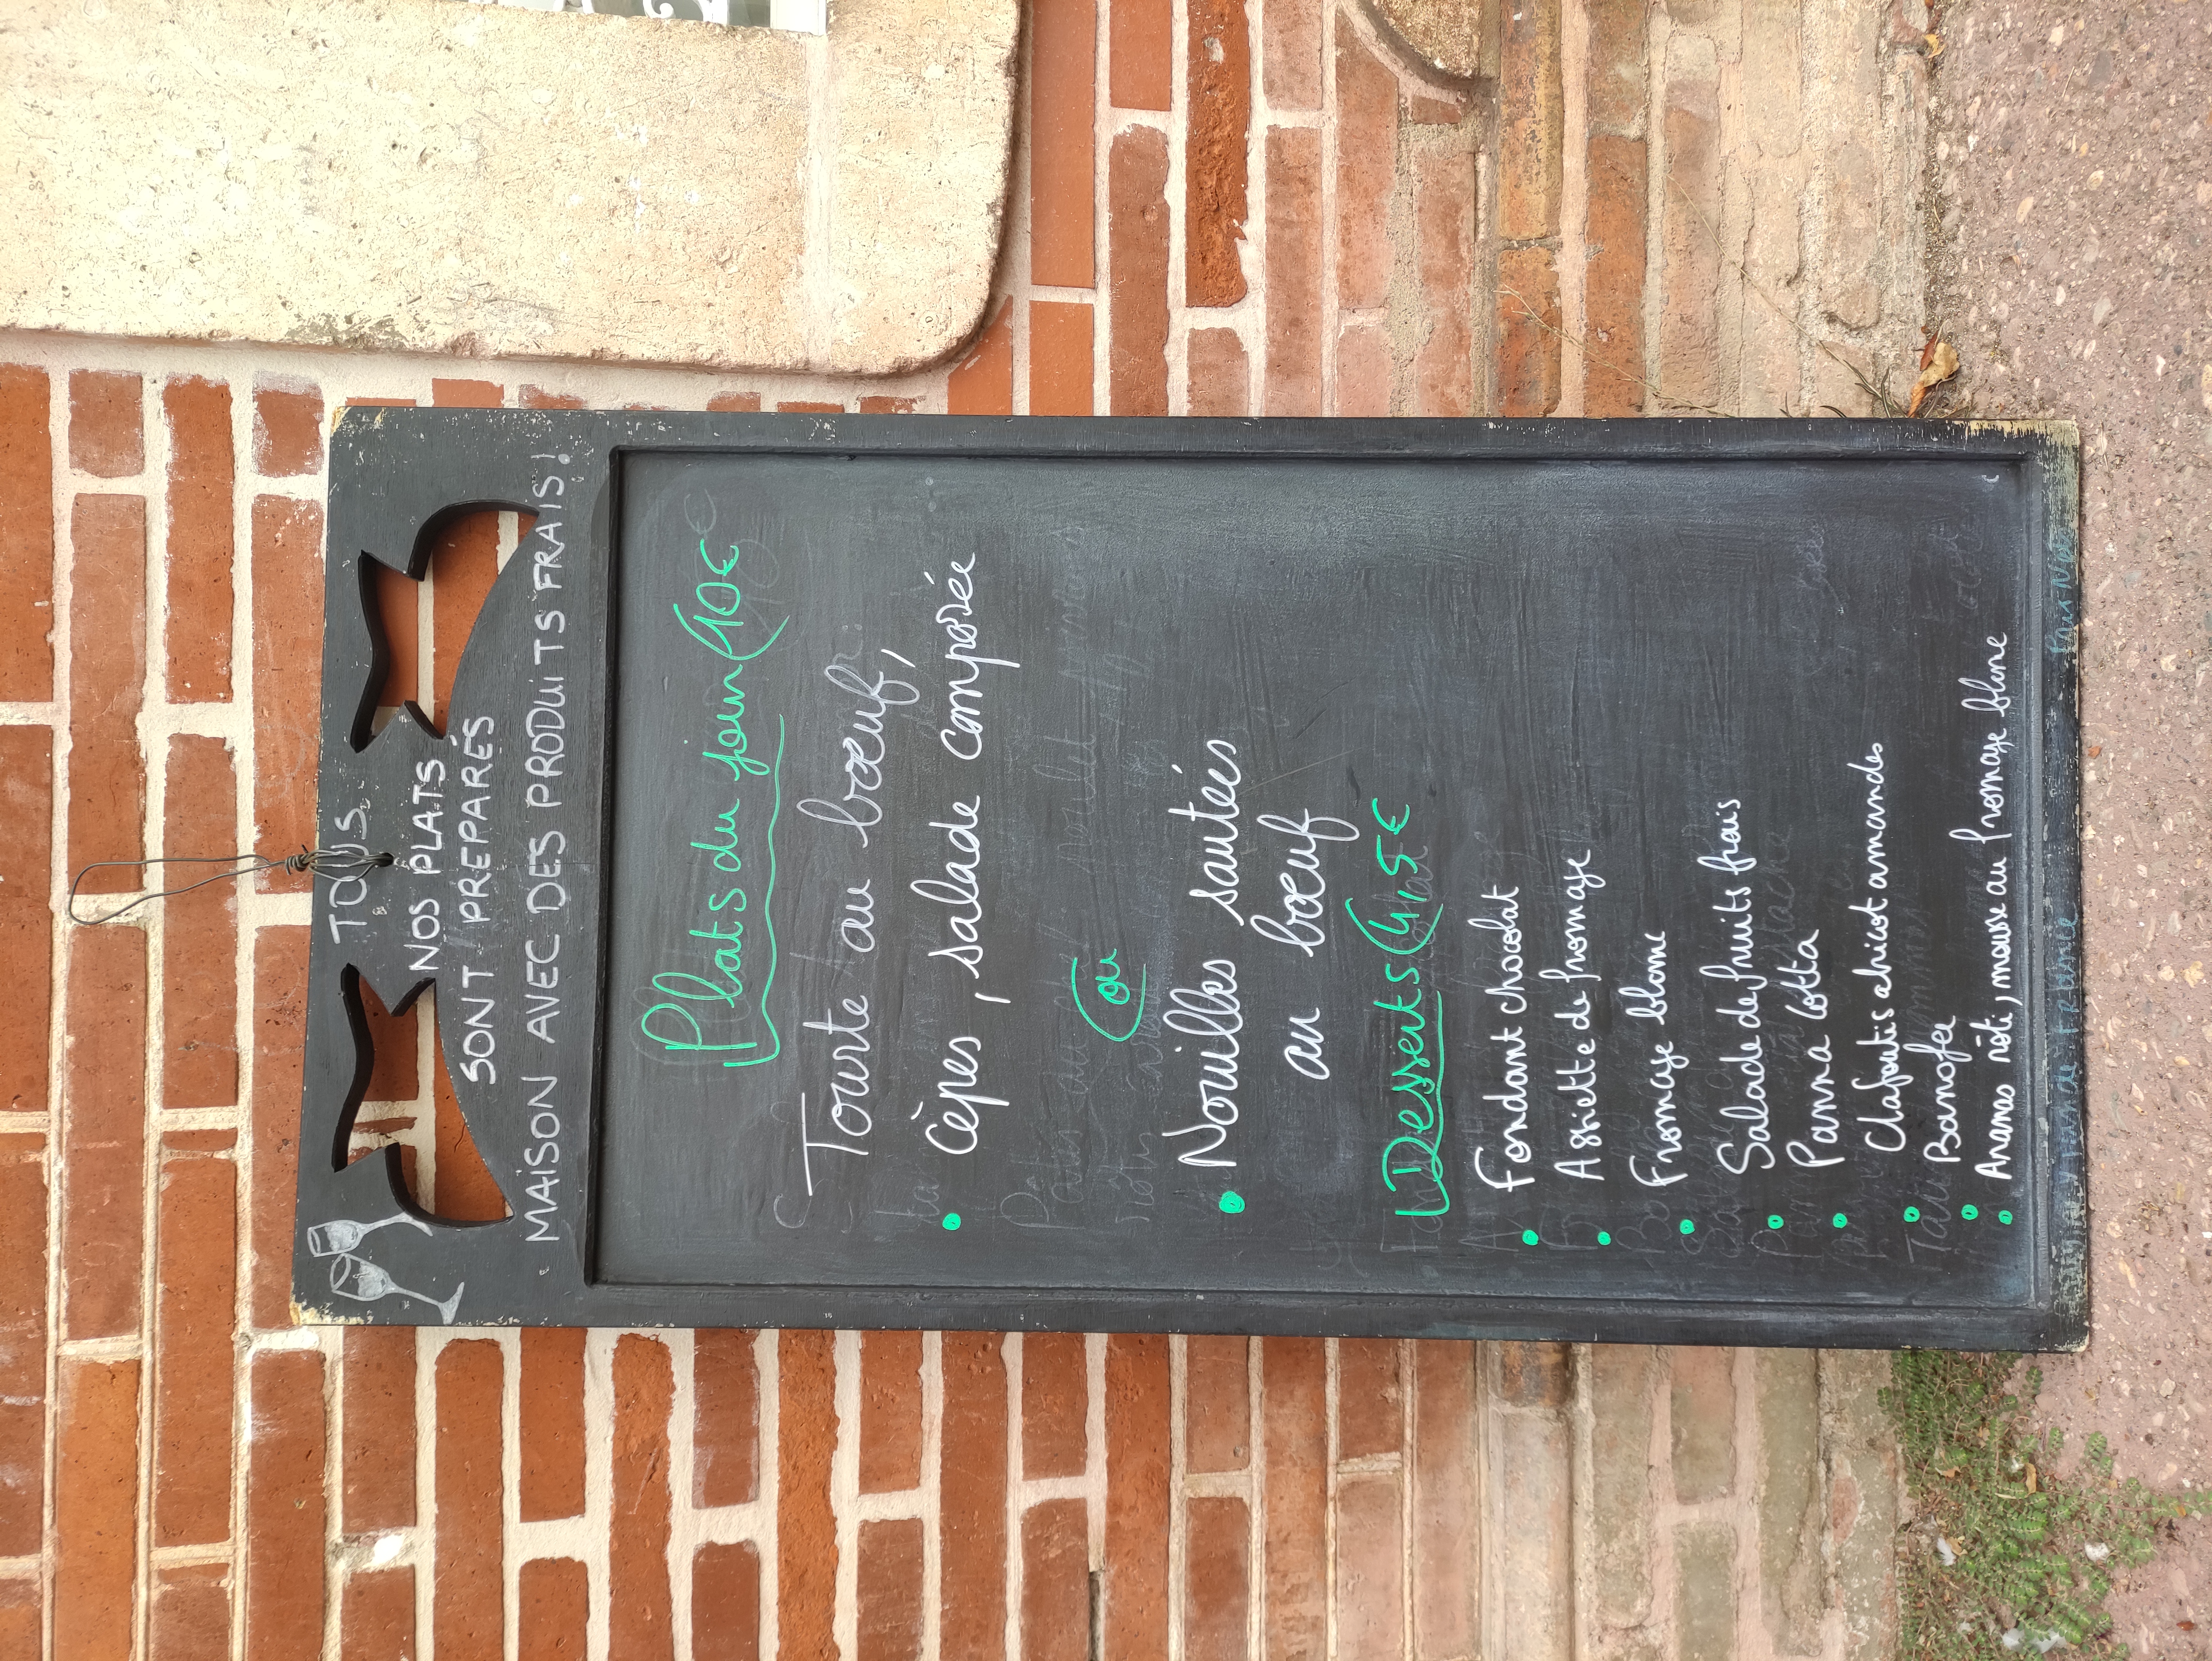 TOUS
NOS PLATS
SONT PREPARÉS
MAISON AVEC DES PRODUITS FRAIS!
Plats du jour (10€
Tourte au bœuf,
cèpes, salade composée
ou
Nouilles sautées
au bœuf
Desserts (4,5€
Fondant chocolat
Assiette de fromage
Fromage blanc
Salade de fruits frais
Panna cotta
Clafoutis abricot amandes
Banofee
Ananas rôti, mousse au fromage blanc